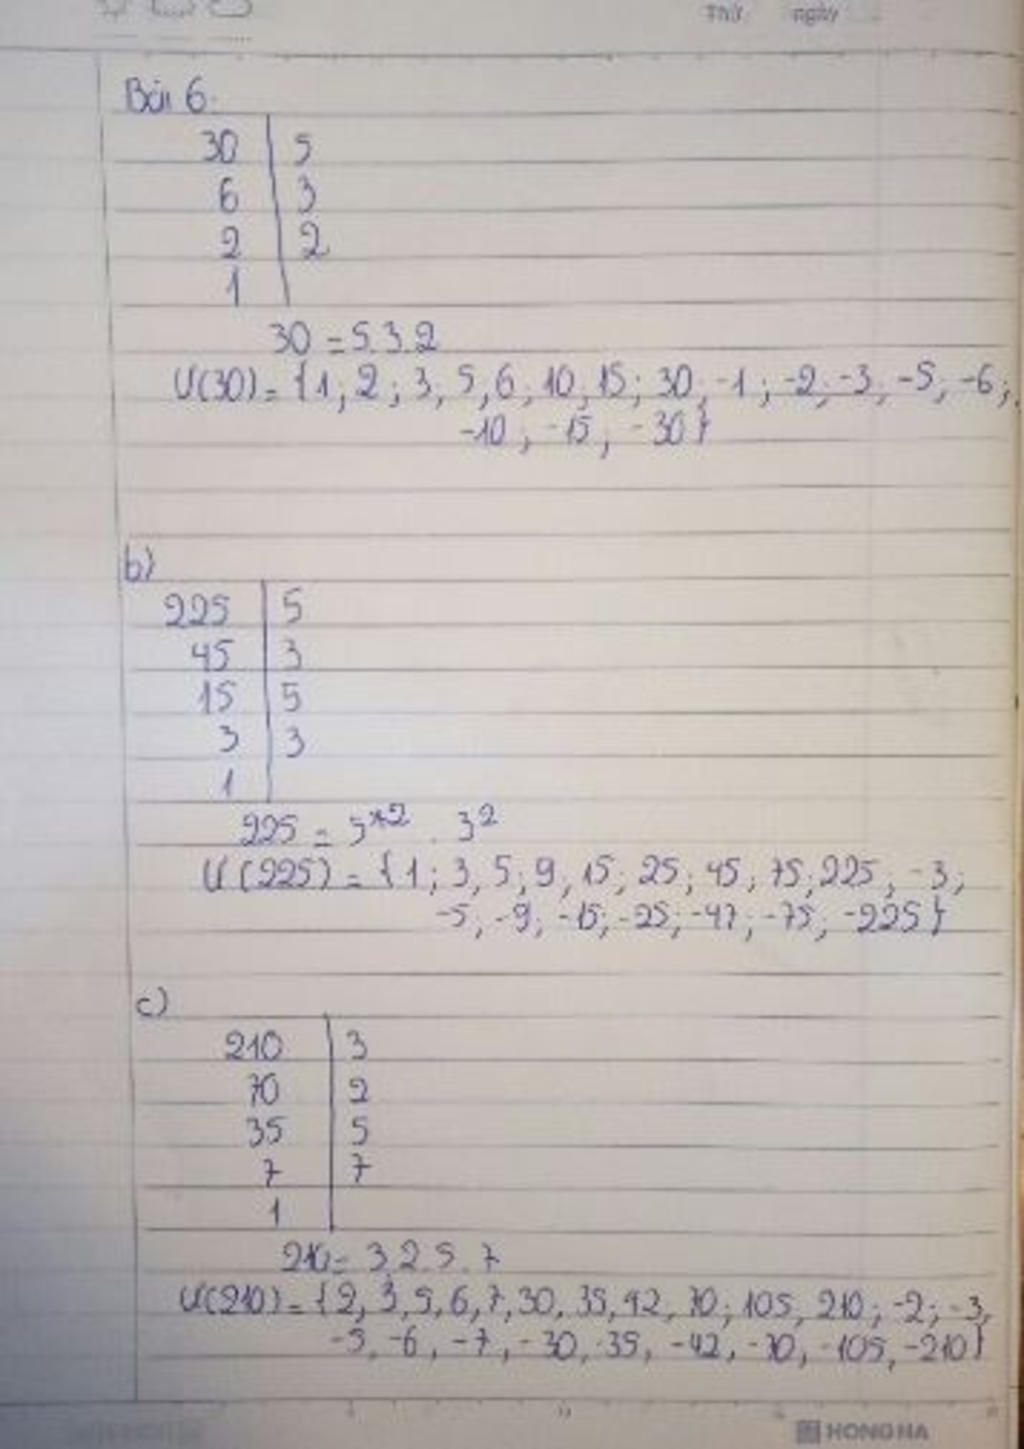 Thứ ngày
Bài 6.
30 5
6 3
2 2
1
30 = 5.3.2
Ư(30) = {1; 2; 3; 5; 6; 10; 15; 30; -1; -2; -3; -5; -6;
-10; -15; -30}
b)
225 5
45 3
15 5
3 3
1
225 = 5² . 3²
Ư(225) = {1; 3; 5; 9; 15; 25; 45; 75; 225; -3;
-5; -9; -15; -25; -47; -75; -225}
c)
210 3
70 2
35 5
7 7
1
210 = 3.2.5.7
Ư(210) = {2, 3, 5, 6, 7, 30, 35, 42, 70; 105, 210; -2; -3,
-5, -6, -7, -30, -35, -42, -70, -105, -210}
HONG HA